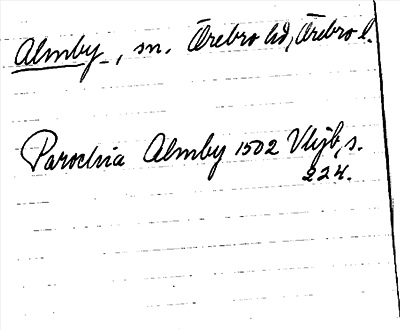 Almby, sn. Örebro hd, Örebro l.
Parochia Almby 1502 Vtjb, s.
224.